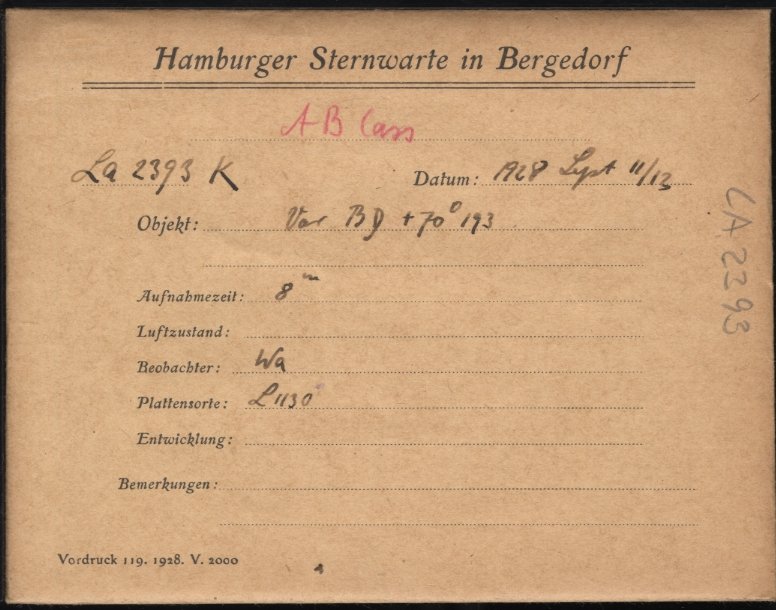 Hamburger Sternwarte in Bergedorf
AB Cass
La 2393 K Datum: 1928 Sept 11/12
Objekt: Var BD +70° 193
Aufnahmezeit: 8ᵐ
Luftzustand:
Beobachter: Wa
Plattensorte: L 1130
Entwicklung:
Bemerkungen:
Vordruck 119. 1928. V. 2000
LA 2393